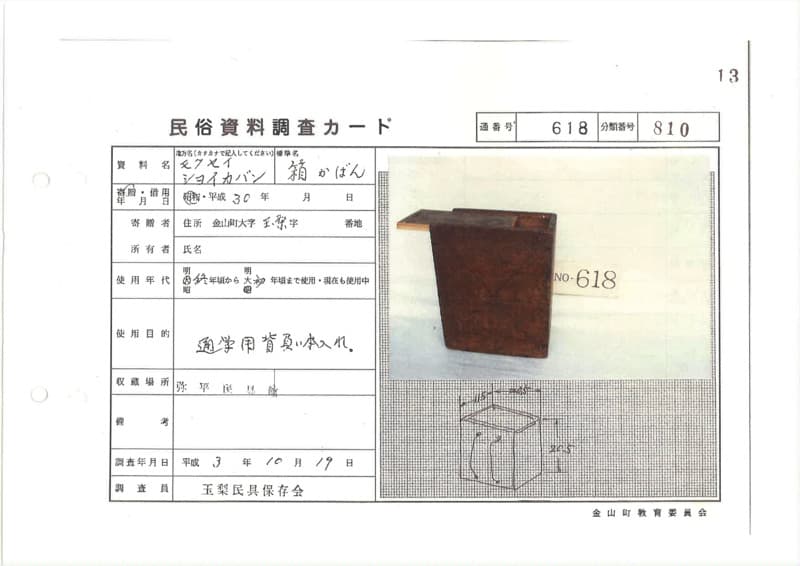 13
民俗資料調査カード
通番号 618 分類番号 810
資料名 地方名(カタカナで記入してください) モクセイ ショイカバン 標準名 箱かばん
寄贈・借用年月日 昭和・平成 30年 月 日
寄贈者 住所 金山町大字 玉梨 字 番地
所有者 氏名
使用年代 明大昭 年頃から 明大昭 初 年頃まで使用・現在も使用中
使用目的 通学用背負い本入れ。
収蔵場所 弥平民具館
備考
調査年月日 平成 3年 10月 19日
調査員 玉梨民具保存会
NO-618
11.5
20.5
金山町教育委員会